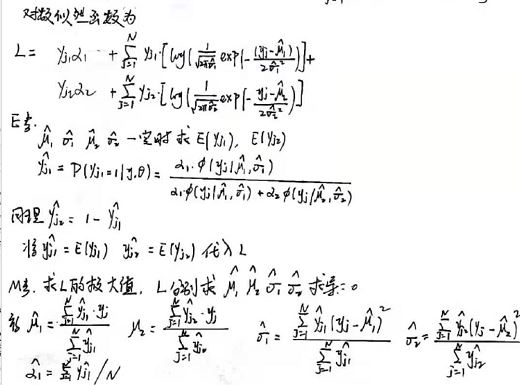 对数似然函数为
L = γj1α1 + Σ_{j=1}^{N} γj1·[log(1/√2πσ̂1 exp{-(yj-μ̂1)/2σ̂1²})]+
γj2α2 + Σ_{j=1}^{N} γj2·[log(1/√2πσ̂2 exp{-(yj-μ̂2)/2σ̂2²})]
E步.
μ̂1 σ̂1 μ̂2 σ̂2 一定时求 E(γj1), E(γj2)
γ̂j1 = P(γj1=1|y,θ) = α1·φ(yj|μ̂1,σ̂1) / α1·φ(yj|μ̂1,σ̂1) + α2 φ(yj|μ̂2,σ̂2)
同理 γ̂j2 = 1 - γ̂j1
将 γ̂j1 = E(γj1) γ̂j2 = E(γj2) 代入 L
M步. 求L的极大值, L分别求 μ̂1 μ̂2 σ̂1 σ̂2 求导=0
μ̂1 = Σ_{j=1}^{N} γ̂j1·yj / Σ_{j=1}^{N} γ̂j1 μ2 = Σ_{j=1}^{N} γ̂j2·yj / Σ_{j=1}^{N} γ̂j2 σ̂1 = Σ_{j=1}^{N} γ̂j1(yj-μ̂1)² / Σ_{j=1}^{N} γ̂j1 σ̂2 = Σ_{j=1}^{N} γ̂j2(yj-μ̂2)² / Σ_{j=1}^{N} γ̂j2
α̂1 = Σ γ̂j1/N